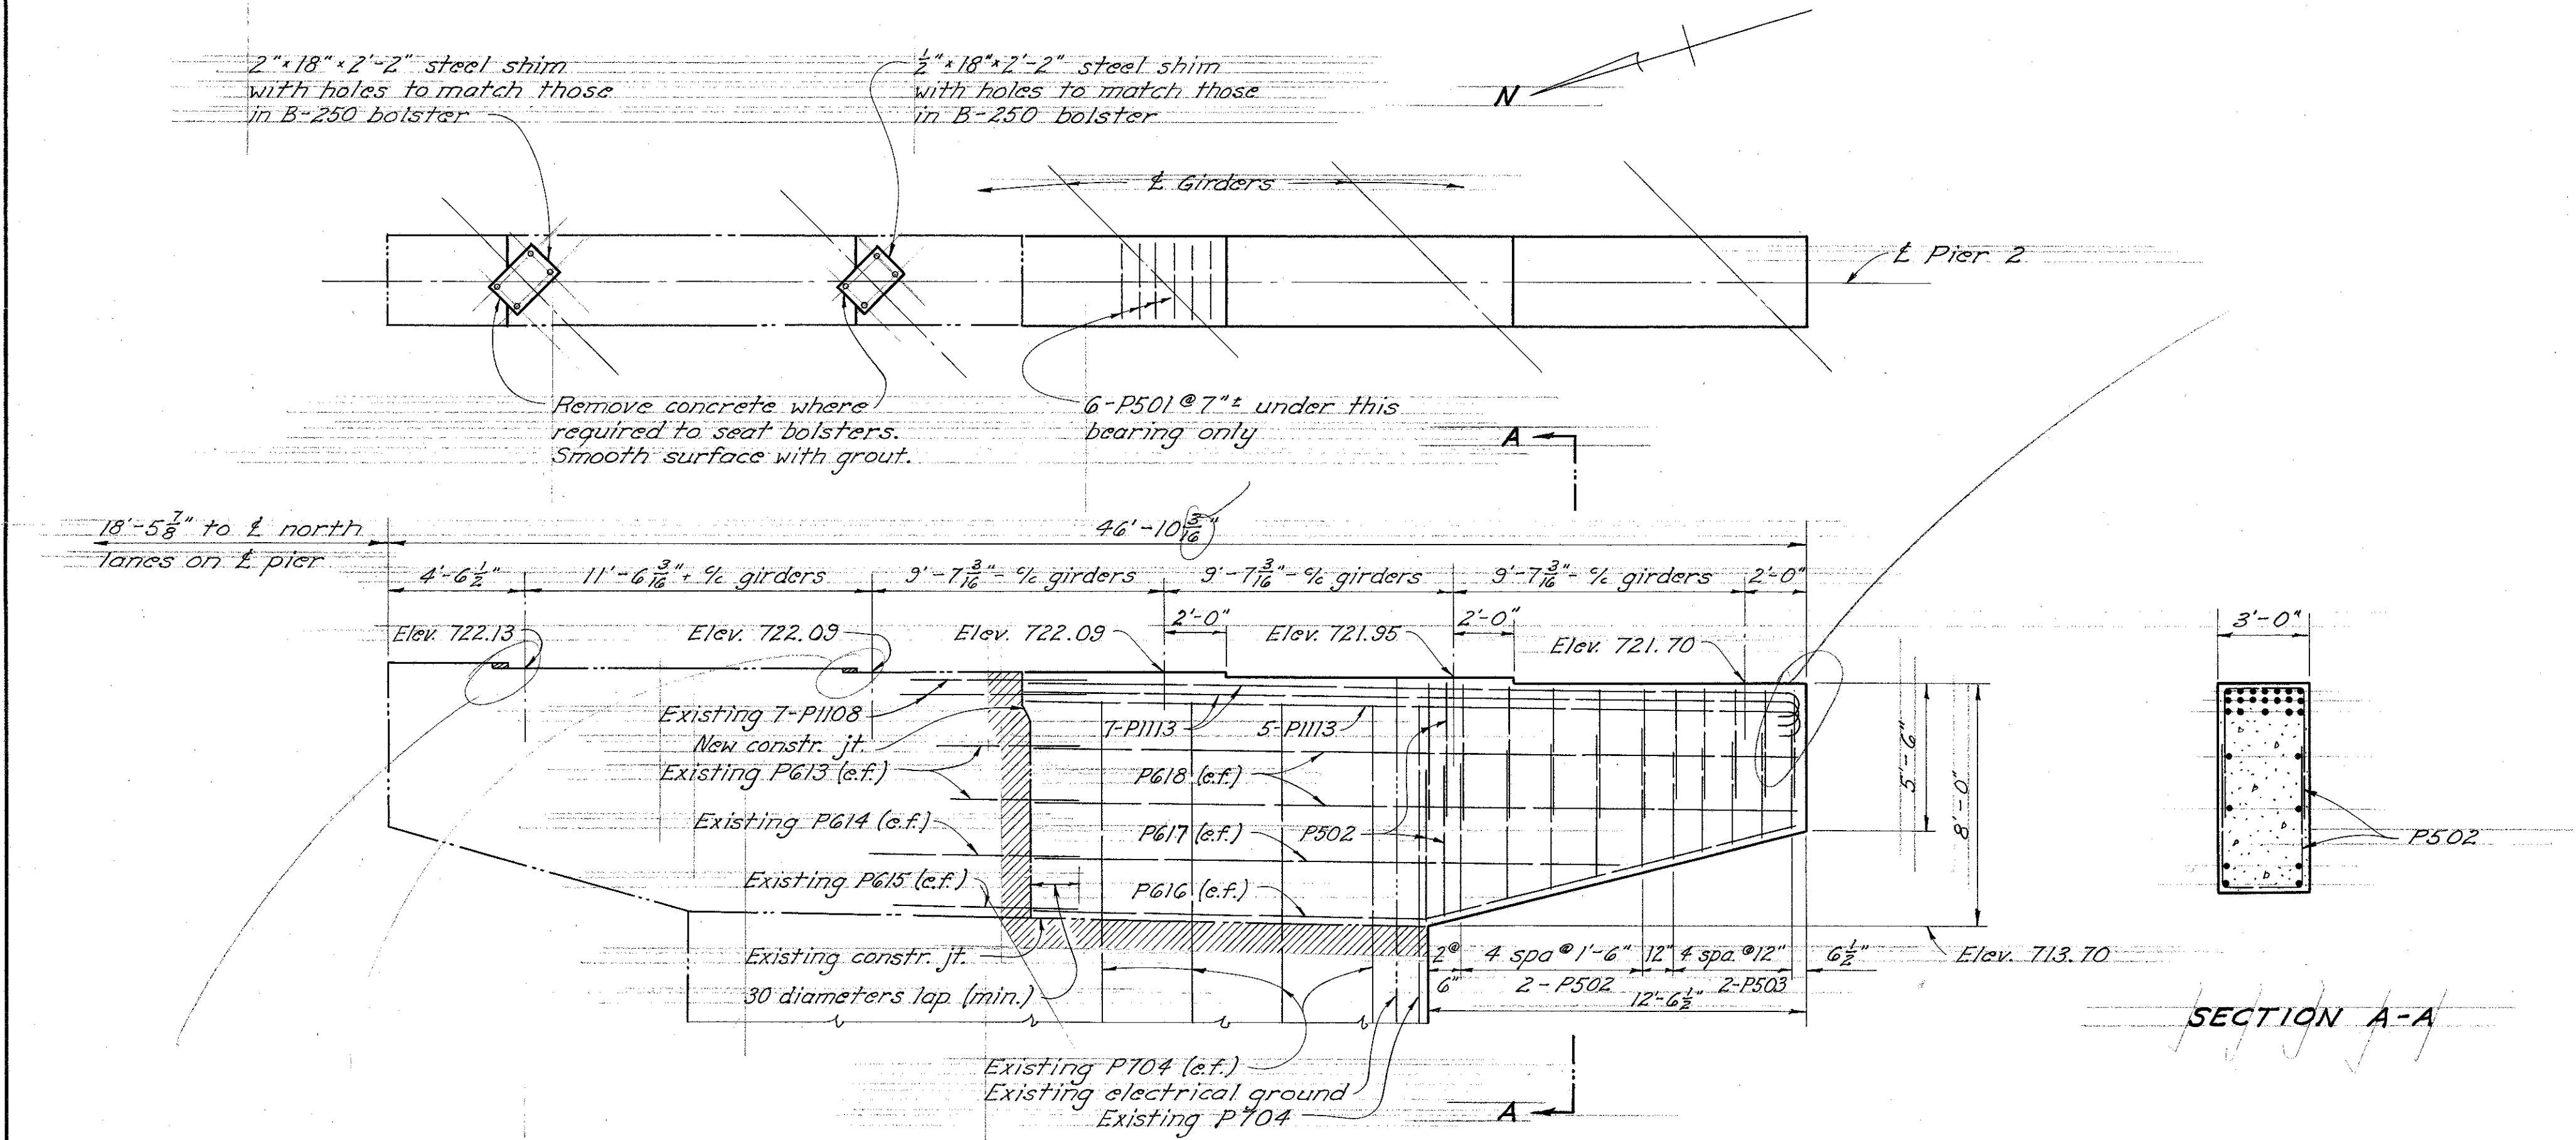 2"×18"×2'-2" steel shim
with holes to match those
in B-250 bolster
½"×18"×2'-2" steel shim
with holes to match those
in B-250 bolster
N
℄ Girders
℄ Pier 2
Remove concrete where
required to seat bolsters.
Smooth surface with grout.
6-P501 @ 7"± under this
bearing only
A
18'-5⅞" to ℄ north
lanes on ℄ pier
46'-10 3/16"
4'-6½"
11'-6 3/16" + c/c girders
9'-7 3/16" - c/c girders
9'-7 3/16" - c/c girders
9'-7 3/16" - c/c girders
2'-0"
Elev. 722.13
Elev. 722.09
Elev. 722.09
2'-0"
Elev. 721.95
2'-0"
Elev. 721.70
3'-0"
Existing 7-P1108
New constr. jt.
Existing P613 (e.f.)
7-P1113
5-P1113
P618 (e.f.)
Existing P614 (e.f.)
P617 (e.f.)
P502
5'-6"
8'-0"
P502
Existing P615 (e.f.)
P616 (e.f.)
Existing constr. jt.
30 diameters lap (min.)
2@
6"
4 spa @ 1'-6"
12"
4 spa. @ 12"
6½"
2-P502
2-P503
12'-6½"
Elev. 713.70
SECTION A-A
Existing P704 (e.f.)
Existing electrical ground
Existing P704
A